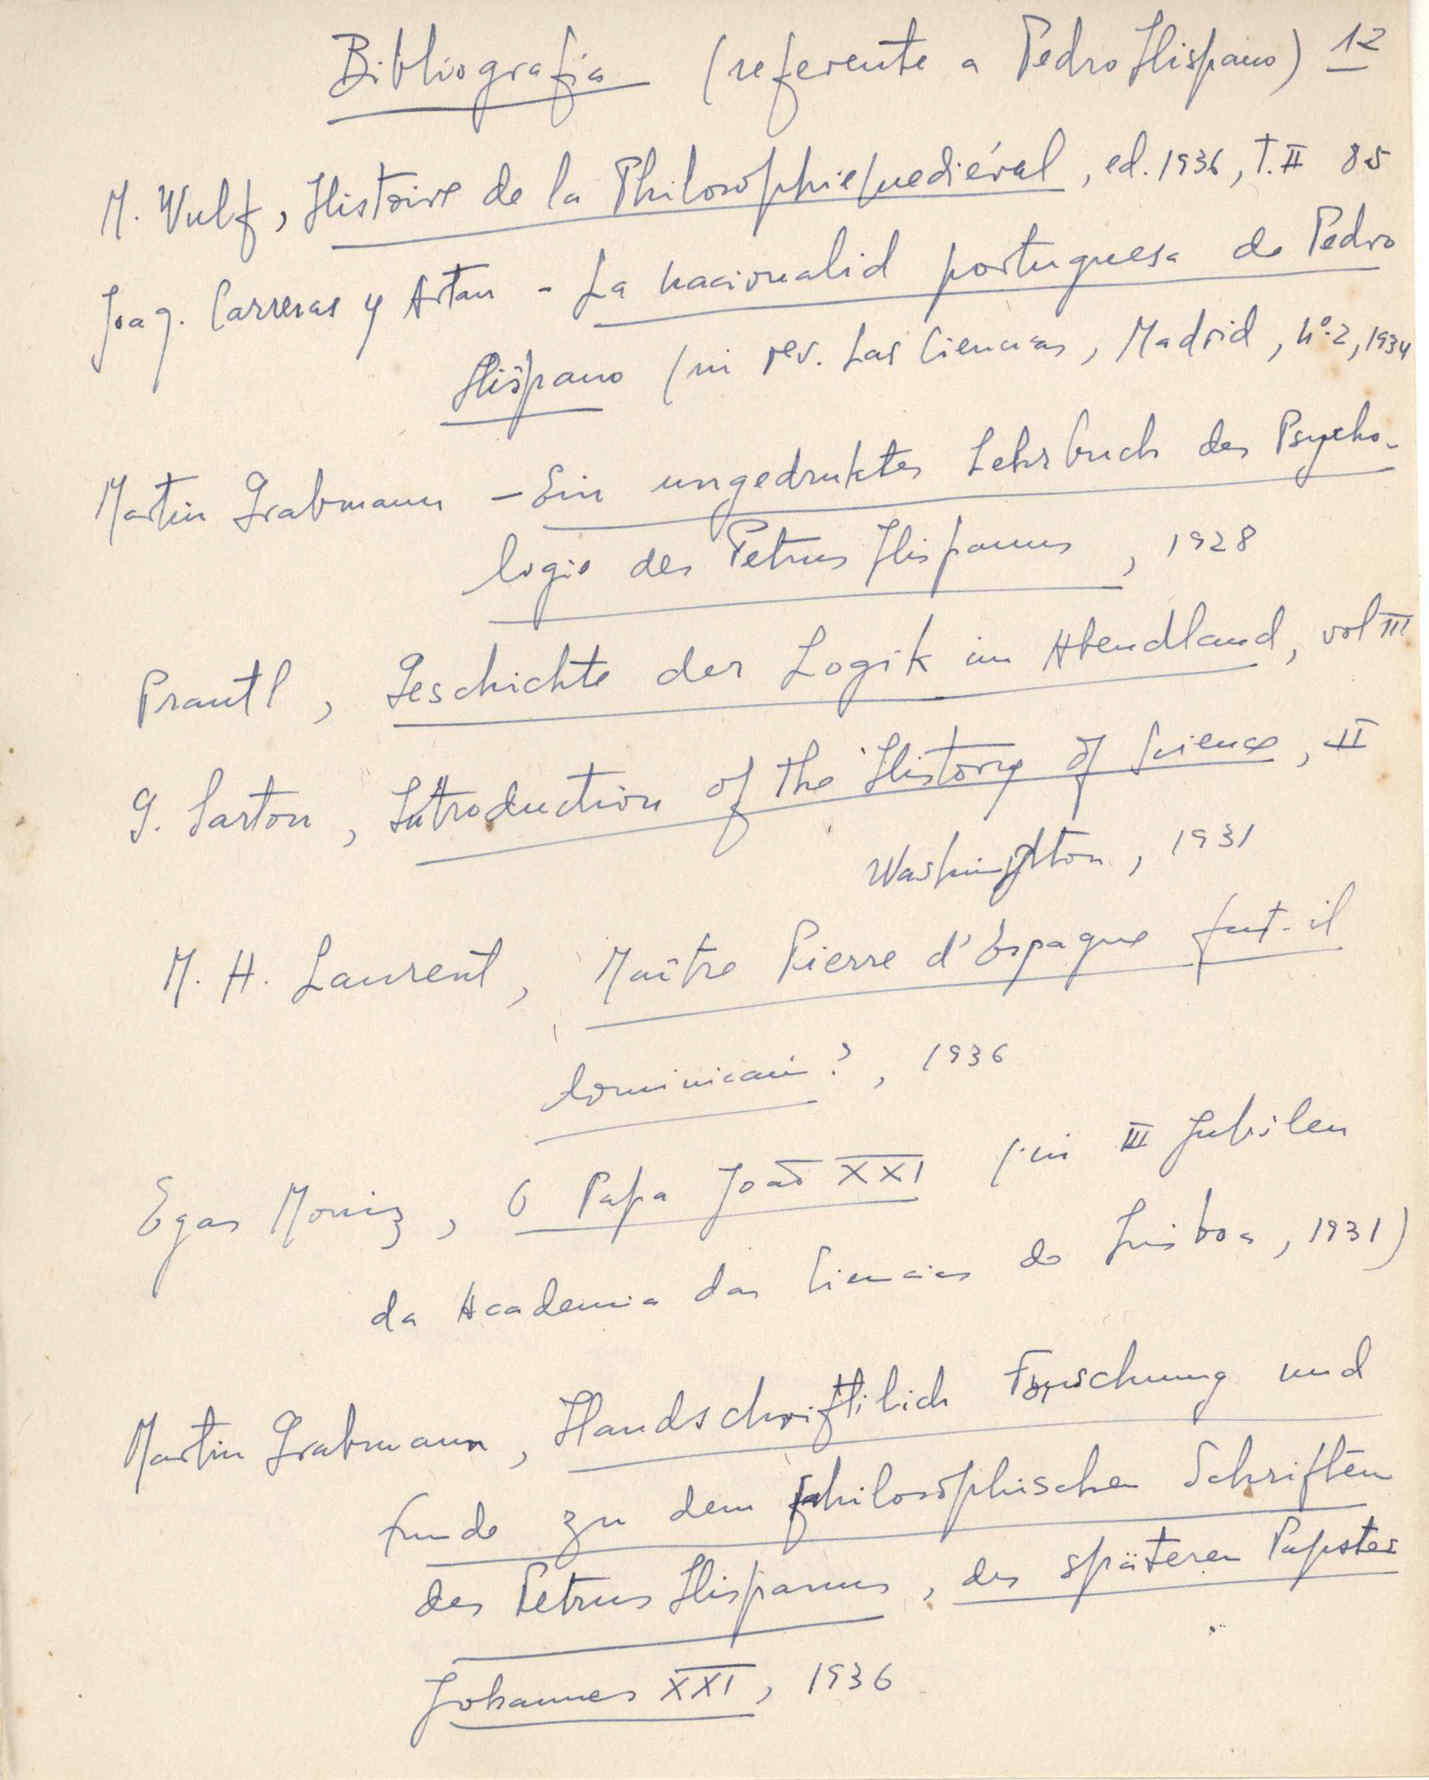 Bibliografia (referente a Pedro Hispano) 12
M. Wulf, Histoire de la Philosophie mediéval, ed. 1936, T. II 85
Joaq. Carreras y Artau - La nacionalid portuguesa de Pedro
Hispano (in rev. Las Ciencias, Madrid, nº 2, 1934
Martin Grabmann - Ein ungedruktes Lehrbuch des Psycho-
logie des Petrus Hispanus, 1928
Prantl, Geschichte der Logik im Abendland, vol III
G. Sarton, Introduction of the History of Science, II
Washington, 1931
M. H. Laurent, Maître Pierre d'Espagne fut-il
dominicain?, 1936
Egas Moniz, O Papa João XXI (in III Jubileu
da Academia das Ciencias de Lisboa, 1931)
Martin Grabmann, Handschriftilich Forschung und
funde zu dem philosophischen Schriften
des Petrus Hispanus, des späteren Papstes
Johannes XXI, 1936